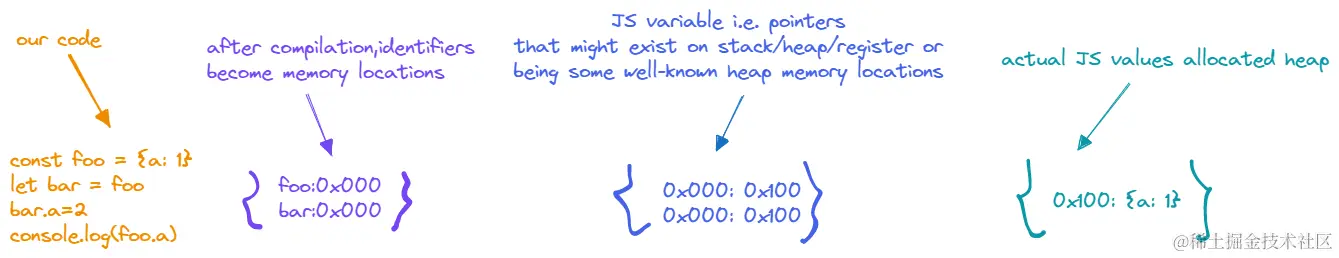 our code
const foo = {a: 1}
let bar = foo
bar.a=2
console.log(foo.a)
after compilation,identifiers
become memory locations
foo:0x000
bar:0x000
JS variable i.e. pointers
that might exist on stack/heap/register or
being some well-known heap memory locations
0x000: 0x100
0x000: 0x100
actual JS values allocated heap
0x100: {a: 1}
@稀土掘金技术社区